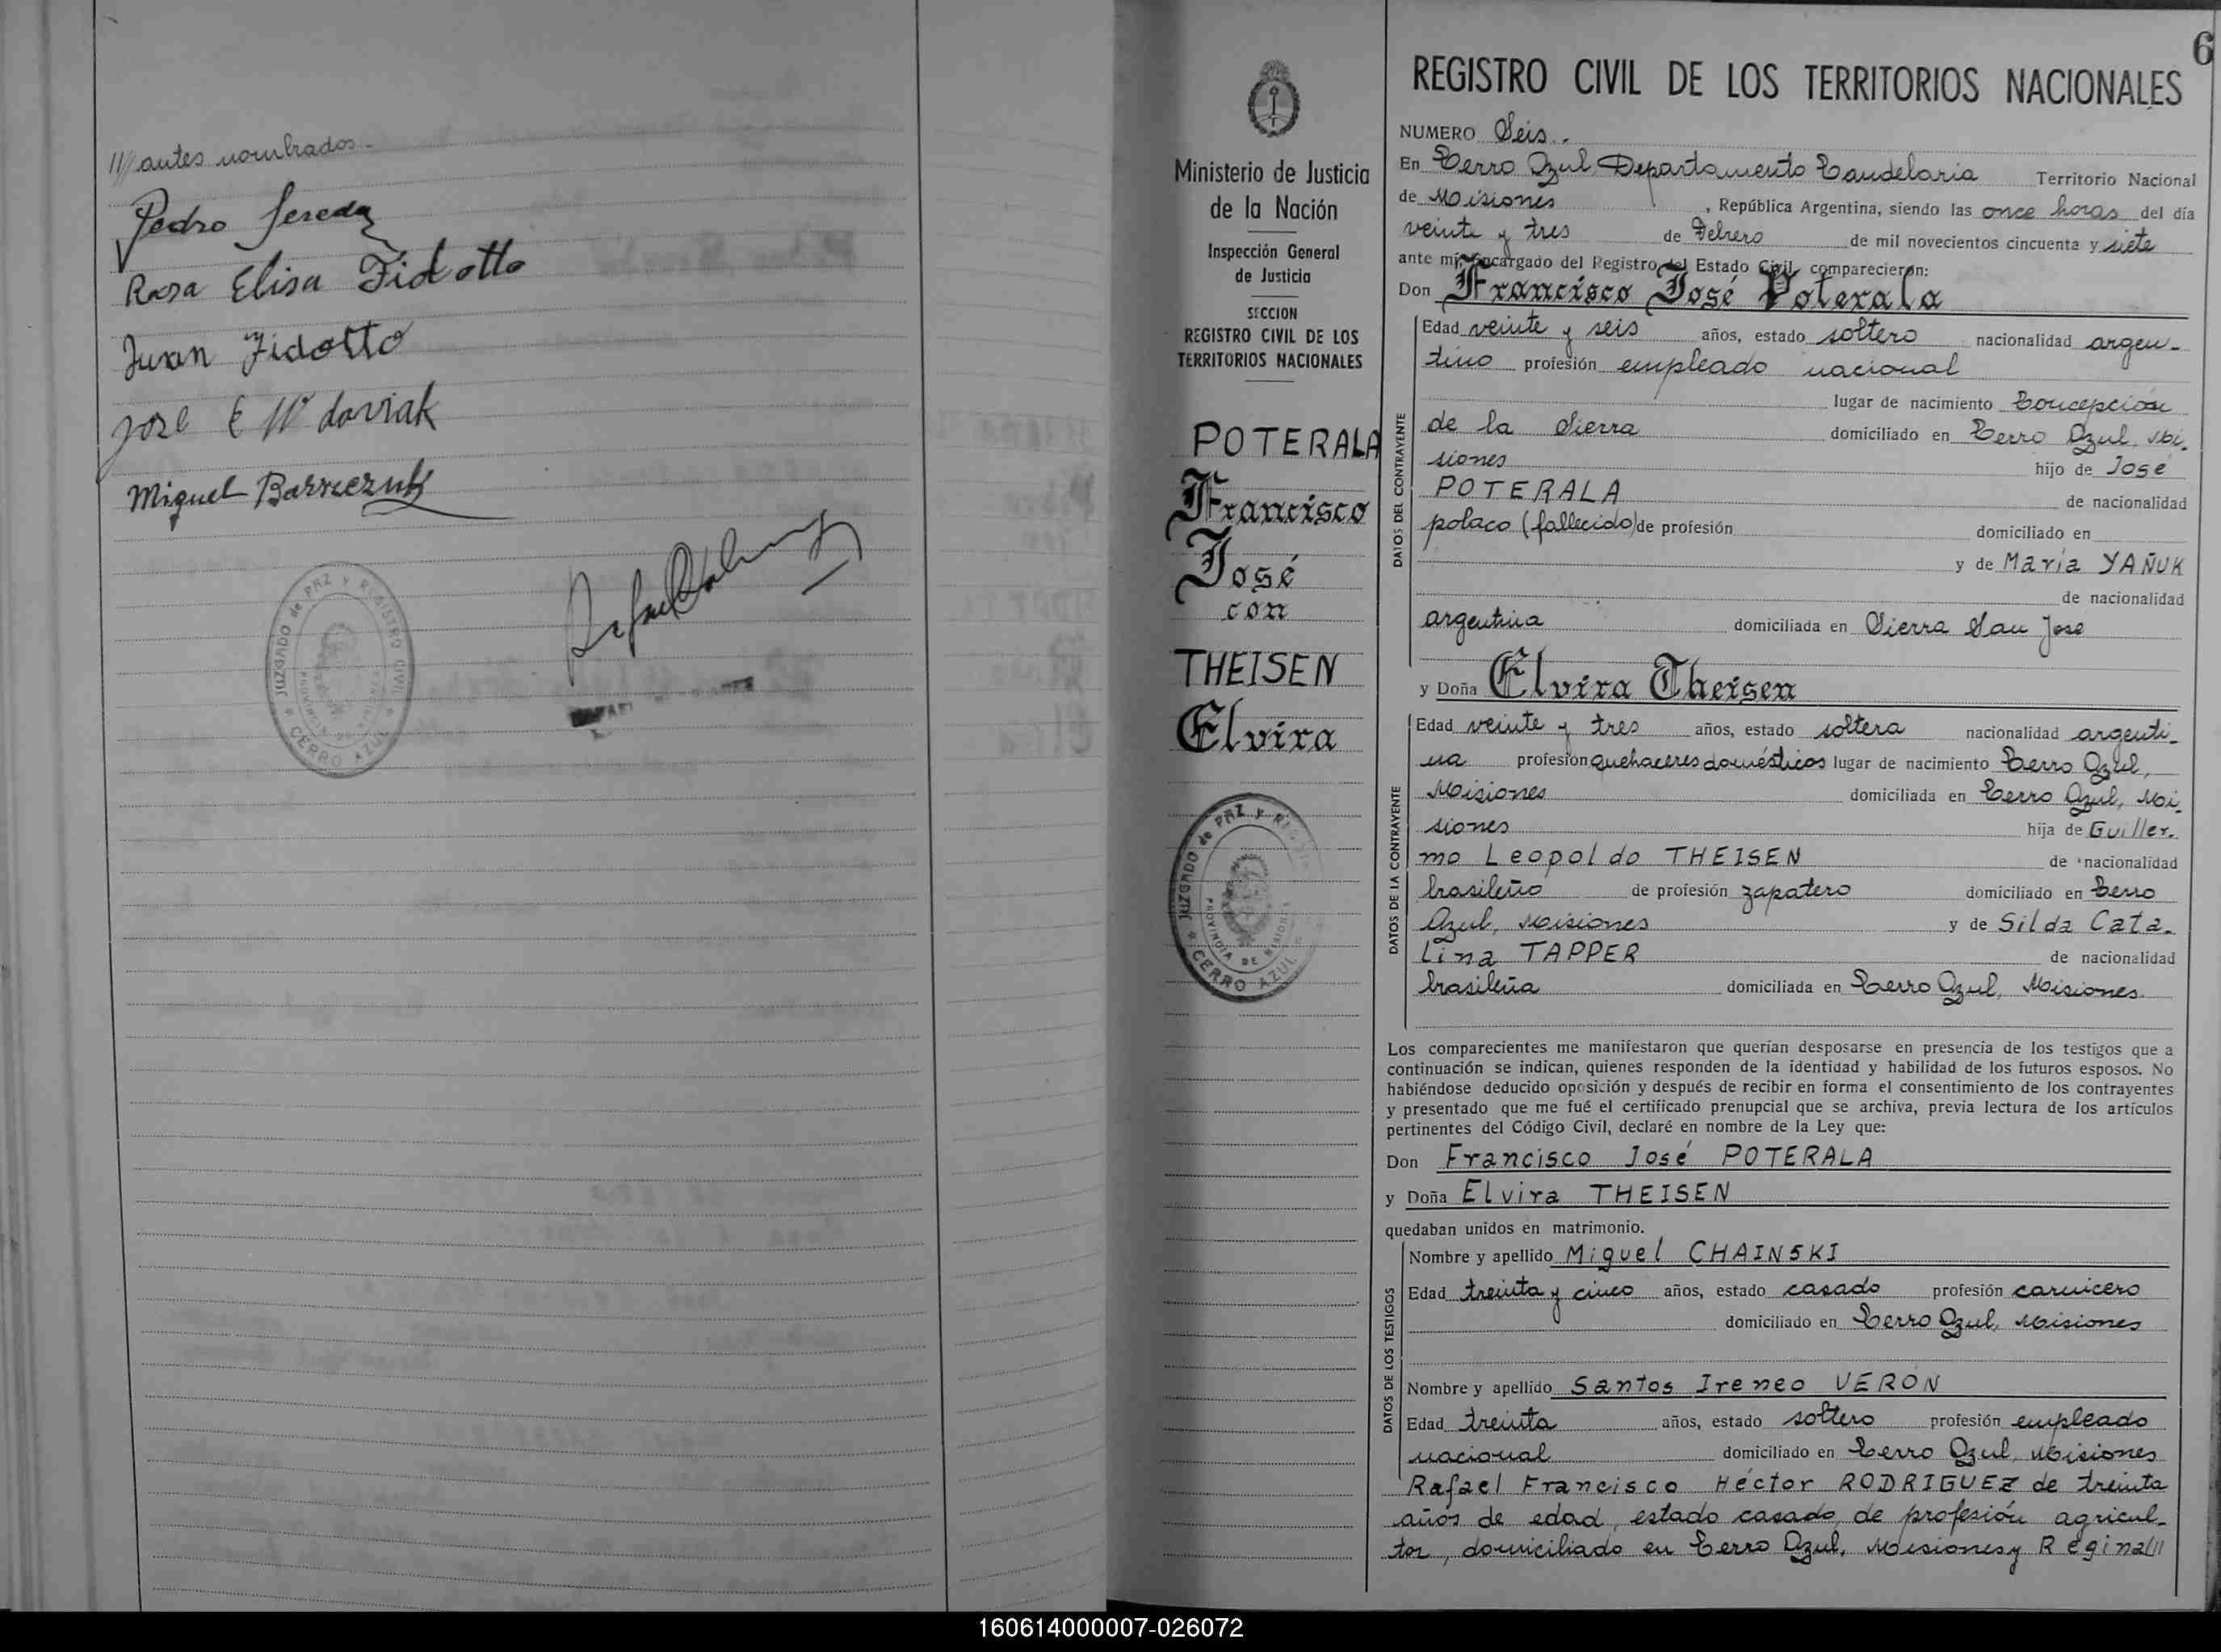 //// antes nombrados.-
Pedro Sereda
Rosa Elisa Fidotto
Juan Fidotto
José E
Miguel
JUZGADO de PAZ Y REGISTRO CIVIL
PROVINCIA DE MISIONES
CERRO AZUL
RAFAEL
6
REGISTRO CIVIL DE LOS TERRITORIOS NACIONALES
Ministerio de Justicia
de la Nación
Inspección General
de Justicia
SECCION
REGISTRO CIVIL DE LOS
TERRITORIOS NACIONALES
POTERALA
Francisco
José
con
THEISEN
Elvira
JUZGADO de PAZ Y REGISTRO
PROVINCIA DE MISIONES
CERRO AZUL
NUMERO Seis.-
En Cerro Azul, Departamento Candelaria Territorio Nacional
de Misiones, República Argentina, siendo las once horas del día
veinte y tres de Febrero de mil novecientos cincuenta y siete
ante mí, Encargado del Registro del Estado Civil, comparecieron:
Don Francisco José Poterala
DATOS DEL CONTRAYENTE
Edad veinte y seis años, estado soltero nacionalidad argen-
tino profesión empleado nacional
lugar de nacimiento Concepción
de la Sierra domiciliado en Cerro Azul, Mi-
siones hijo de José
POTERALA de nacionalidad
polaco (fallecido) de profesión domiciliado en
y de María YAÑUK
de nacionalidad
argentina domiciliada en Sierra San José
y Doña Elvira Theisen
DATOS DE LA CONTRAYENTE
Edad veinte y tres años, estado soltera nacionalidad argenti-
na profesión quehaceres domésticos lugar de nacimiento Cerro Azul,
Misiones domiciliada en Cerro Azul, Mi-
siones hija de Guiller-
mo Leopoldo THEISEN de nacionalidad
brasileño de profesión zapatero domiciliado en Cerro
Azul, Misiones y de Silda Cata-
lina TAPPER de nacionalidad
brasileña domiciliada en Cerro Azul, Misiones
Los comparecientes me manifestaron que querían desposarse en presencia de los testigos que a
continuación se indican, quienes responden de la identidad y habilidad de los futuros esposos. No
habiéndose deducido oposición y después de recibir en forma el consentimiento de los contrayentes
y presentado que me fué el certificado prenupcial que se archiva, previa lectura de los artículos
pertinentes del Código Civil, declaré en nombre de la Ley que:
Don Francisco José POTERALA
y Doña Elvira THEISEN
quedaban unidos en matrimonio.
DATOS DE LOS TESTIGOS
Nombre y apellido Miguel CHAINSKI
Edad treinta y cinco años, estado casado profesión carnicero
domiciliado en Cerro Azul, Misiones
Nombre y apellido Santos Ireneo VERÓN
Edad treinta años, estado soltero profesión empleado
nacional domiciliado en Cerro Azul, Misiones
Rafael Francisco Héctor RODRIGUEZ de treinta
años de edad, estado casado, de profesión agricul-
tor, domiciliado en Cerro Azul, Misiones y Regina////
160614000007-026072